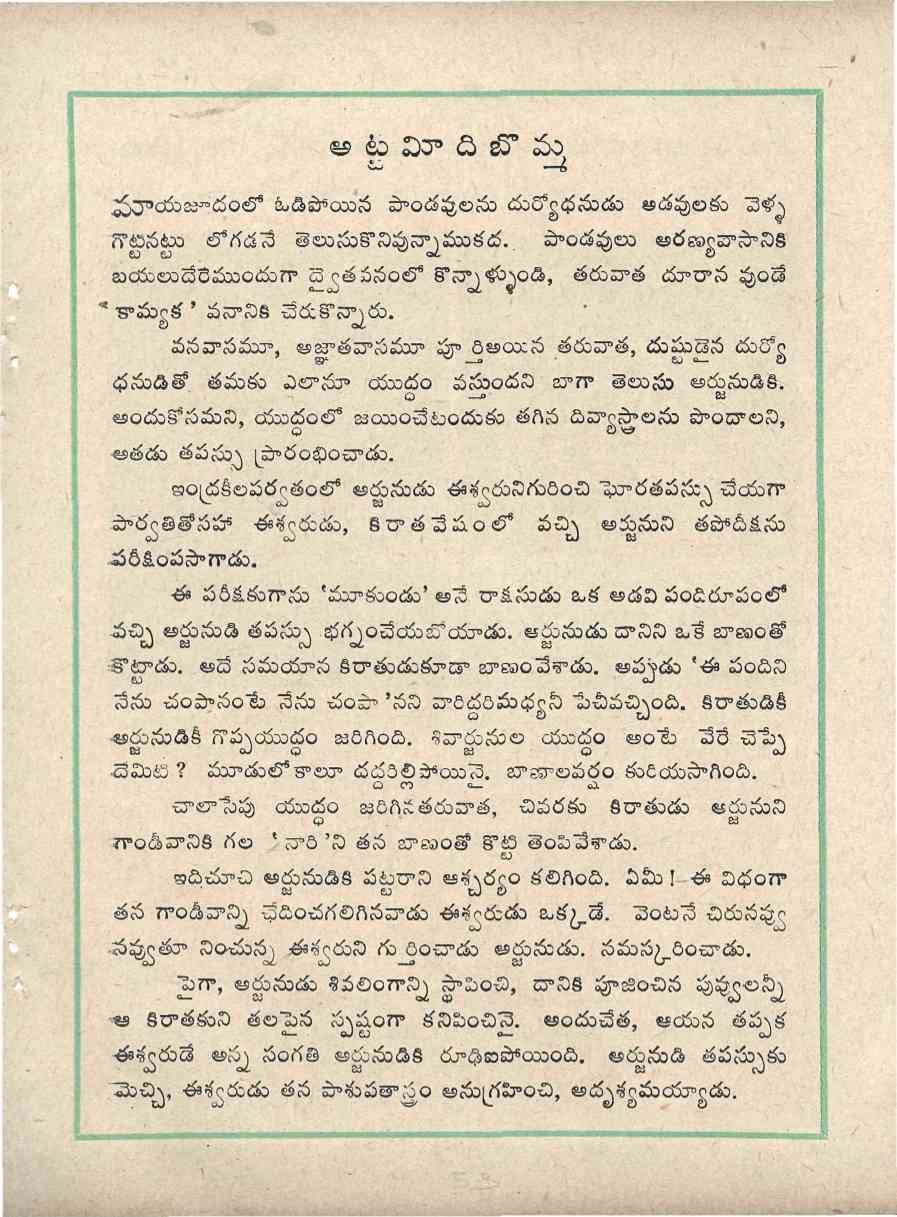 అట్టమీది బొమ్మ
మాయజూదంలో ఓడిపోయిన పాండవులను దుర్యోధనుడు అడవులకు వెళ్ళ
గొట్టినట్టు లోగడనే తెలుసుకొనివున్నాముకద. పాండవులు అరణ్యవాసానికి
బయలుదేరేముందుగా ద్వైతవనంలో కొన్నాళ్ళుండి, తరువాత దూరాన వుండే
‘కామ్యక’ వనానికి చేరుకొన్నారు.
వనవాసమూ, అజ్ఞాతవాసమూ పూర్తిఅయిన తరువాత, దుష్టుడైన దుర్యో
ధనుడితో తమకు ఎలానూ యుద్ధం వస్తుందని బాగా తెలుసు అర్జునుడికి.
అందుకోసమని, యుద్ధంలో జయించేటందుకు తగిన దివ్యాస్త్రాలను పొందాలని,
అతడు తపస్సు ప్రారంభించాడు.
ఇంద్రకీలపర్వతంలో అర్జునుడు ఈశ్వరునిగురించి ఘోరతపస్సు చేయగా
పార్వతితోసహా ఈశ్వరుడు, కిరాతవేషంలో వచ్చి అర్జునుని తపోదీక్షను
పరీక్షింపసాగాడు.
ఈ పరీక్షకుగాను ‘మూకుండు’ అనే రాక్షసుడు ఒక అడవి పందిరూపంలో
వచ్చి అర్జునుడి తపస్సు భగ్నంచేయబోయాడు. అర్జునుడు దానిని ఒకే బాణంతో
కొట్టాడు. అదే సమయాన కిరాతుడుకూడా బాణంవేశాడు. అప్పుడు ‘ఈ పందిని
నేను చంపానంటే నేను చంపా’నని వారిద్దరిమధ్యనీ పేచీవచ్చింది. కిరాతుడికీ
అర్జునుడికీ గొప్పయుద్ధం జరిగింది. శివార్జునుల యుద్ధం అంటే వేరే చెప్పే
దేమిటి? మూడులోకాలూ దద్దరిల్లిపోయినై. బాణాలవర్షం కురియసాగింది.
చాలాసేపు యుద్ధం జరిగినతరువాత, చివరకు కిరాతుడు అర్జునుని
గాండీవానికి గల ‘నారి’ని తన బాణంతో కొట్టి తెంపివేశాడు.
ఇదిచూచి అర్జునుడికి పట్టరాని ఆశ్చర్యం కలిగింది. ఏమీ!—ఈ విధంగా
తన గాండీవాన్ని ఛేదించగలిగినవాడు ఈశ్వరుడు ఒక్కడే. వెంటనే చిరునవ్వు
నవ్వుతూ నించున్న ఈశ్వరుని గుర్తించాడు అర్జునుడు. నమస్కరించాడు.
పైగా, అర్జునుడు శివలింగాన్ని స్థాపించి, దానికి పూజించిన పువ్వులన్నీ
ఆ కిరాతకుని తలపైన స్పష్టంగా కనిపించినై. అందుచేత, ఆయన తప్పక
ఈశ్వరుడే అన్న సంగతి అర్జునుడికి రూఢిఐపోయింది. అర్జునుడి తపస్సుకు
మెచ్చి, ఈశ్వరుడు తన పాశుపతాస్త్రం అనుగ్రహించి, అదృశ్యమయ్యాడు.